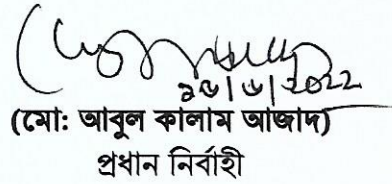 ২৬/৬/2022
(মো: আবুল কালাম আজাদ)
প্রধান নির্বাহী